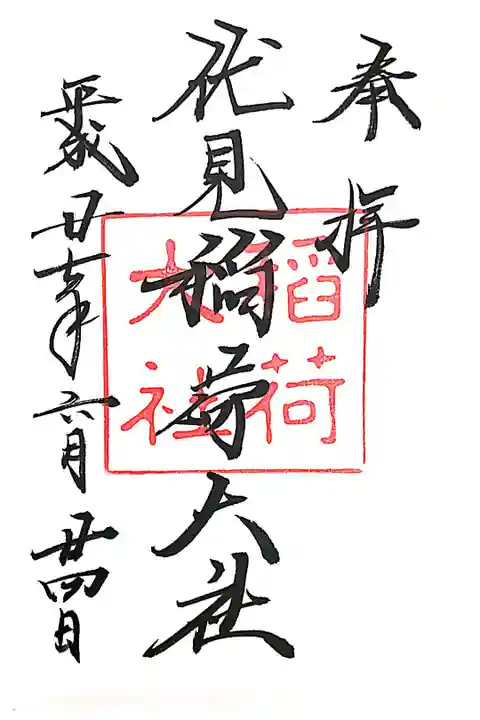 奉拝
伏見稲荷大社
平成廿七年六月廿四日
稲荷
大社